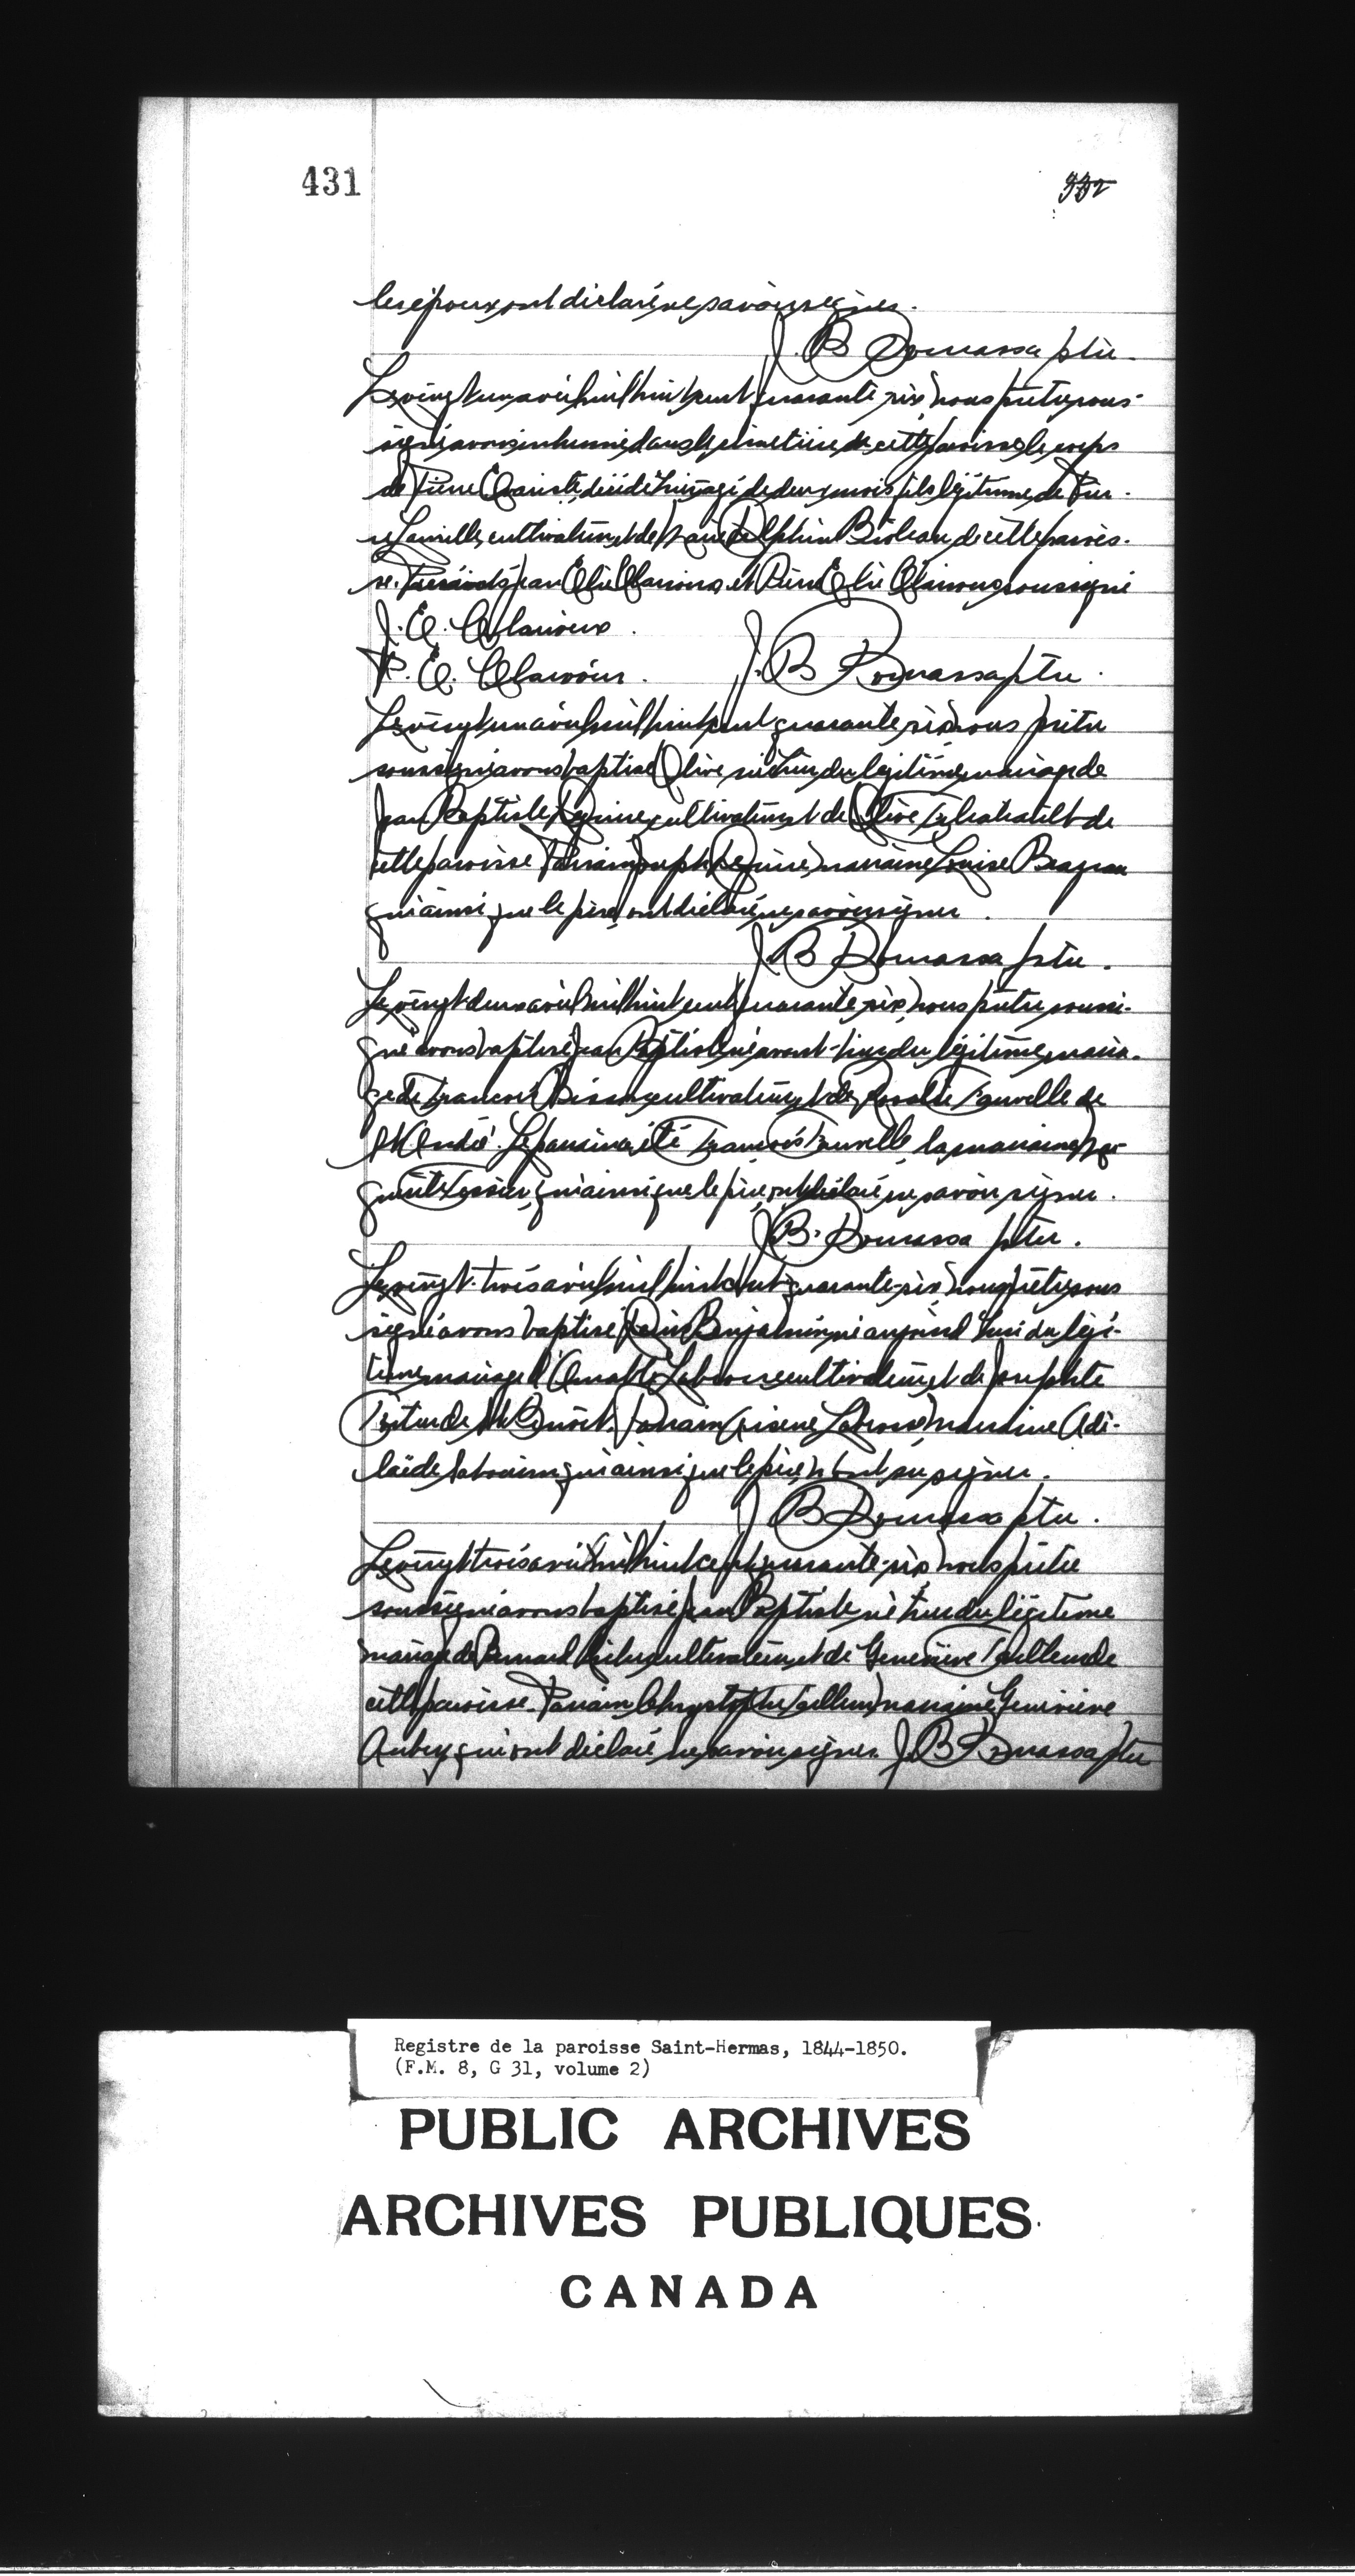 431
332
les époux ont déclaré ne savoir signer.
J. B. Dumassa ptre.
Le vingt un avril mil huit cent quarante six, nous prêtre sous-
signé avons inhumé dans le cimetière de cette paroisse le corps
de Pierre Evariste, décédé hier, âgé de deux mois, fils légitime de Pier-
re cultivateur, et de Marie Delphine de cette parois-
se. Présents, Jean Elie et Pierre Elie soussignés
J. E.
P. E. J. B. Dumassa ptre.
Le vingt un avril mil huit cent quarante six, nous prêtre
soussigné avons baptisé Olive née hier du légitime mariage de
Jean Baptiste cultivateur, et de Olive de
cette paroisse. Parrain Joseph marraine Louise
qui ainsi que le père, ont déclaré ne savoir signer.
J. B. Dumassa ptre.
Le vingt deux avril mil huit cent quarante six, nous prêtre soussi-
gné avons baptisé Jean Baptiste né avant-hier du légitime maria-
ge de François cultivateur, et de Rosalie de
St André. Le parrain a été François la marraine Mar-
guerite qui ainsi que le père, ont déclaré ne savoir signer.
J. B. Dumassa ptre.
Le vingt-trois avril mil huit cent quarante-six, nous prêtre sous
signé avons baptisé Benjamin, né aujourd'hui du légi-
time mariage d'Amable Labrosse cultivateur, et de Josephte
de St Benoît. Parrain Labrosse, marraine Adé-
laïde qui ainsi que le père, n'ont su signer.
J. B. Dumassa ptre.
Le vingt trois avril mil huit cent quarante-six, nous prêtre
soussigné avons baptisé Jean Baptiste né hier du légitime
mariage de Bernard cultivateur, et de Geneviève de
cette paroisse. Parrain Chrystophe marraine Geneviève
Aubry, qui ont déclaré ne savoir signer. J. B. Dumassa ptre
Registre de la paroisse Saint-Hermas, 1844-1850.
(F.M. 8, G 31, volume 2)
PUBLIC ARCHIVES
ARCHIVES PUBLIQUES
CANADA